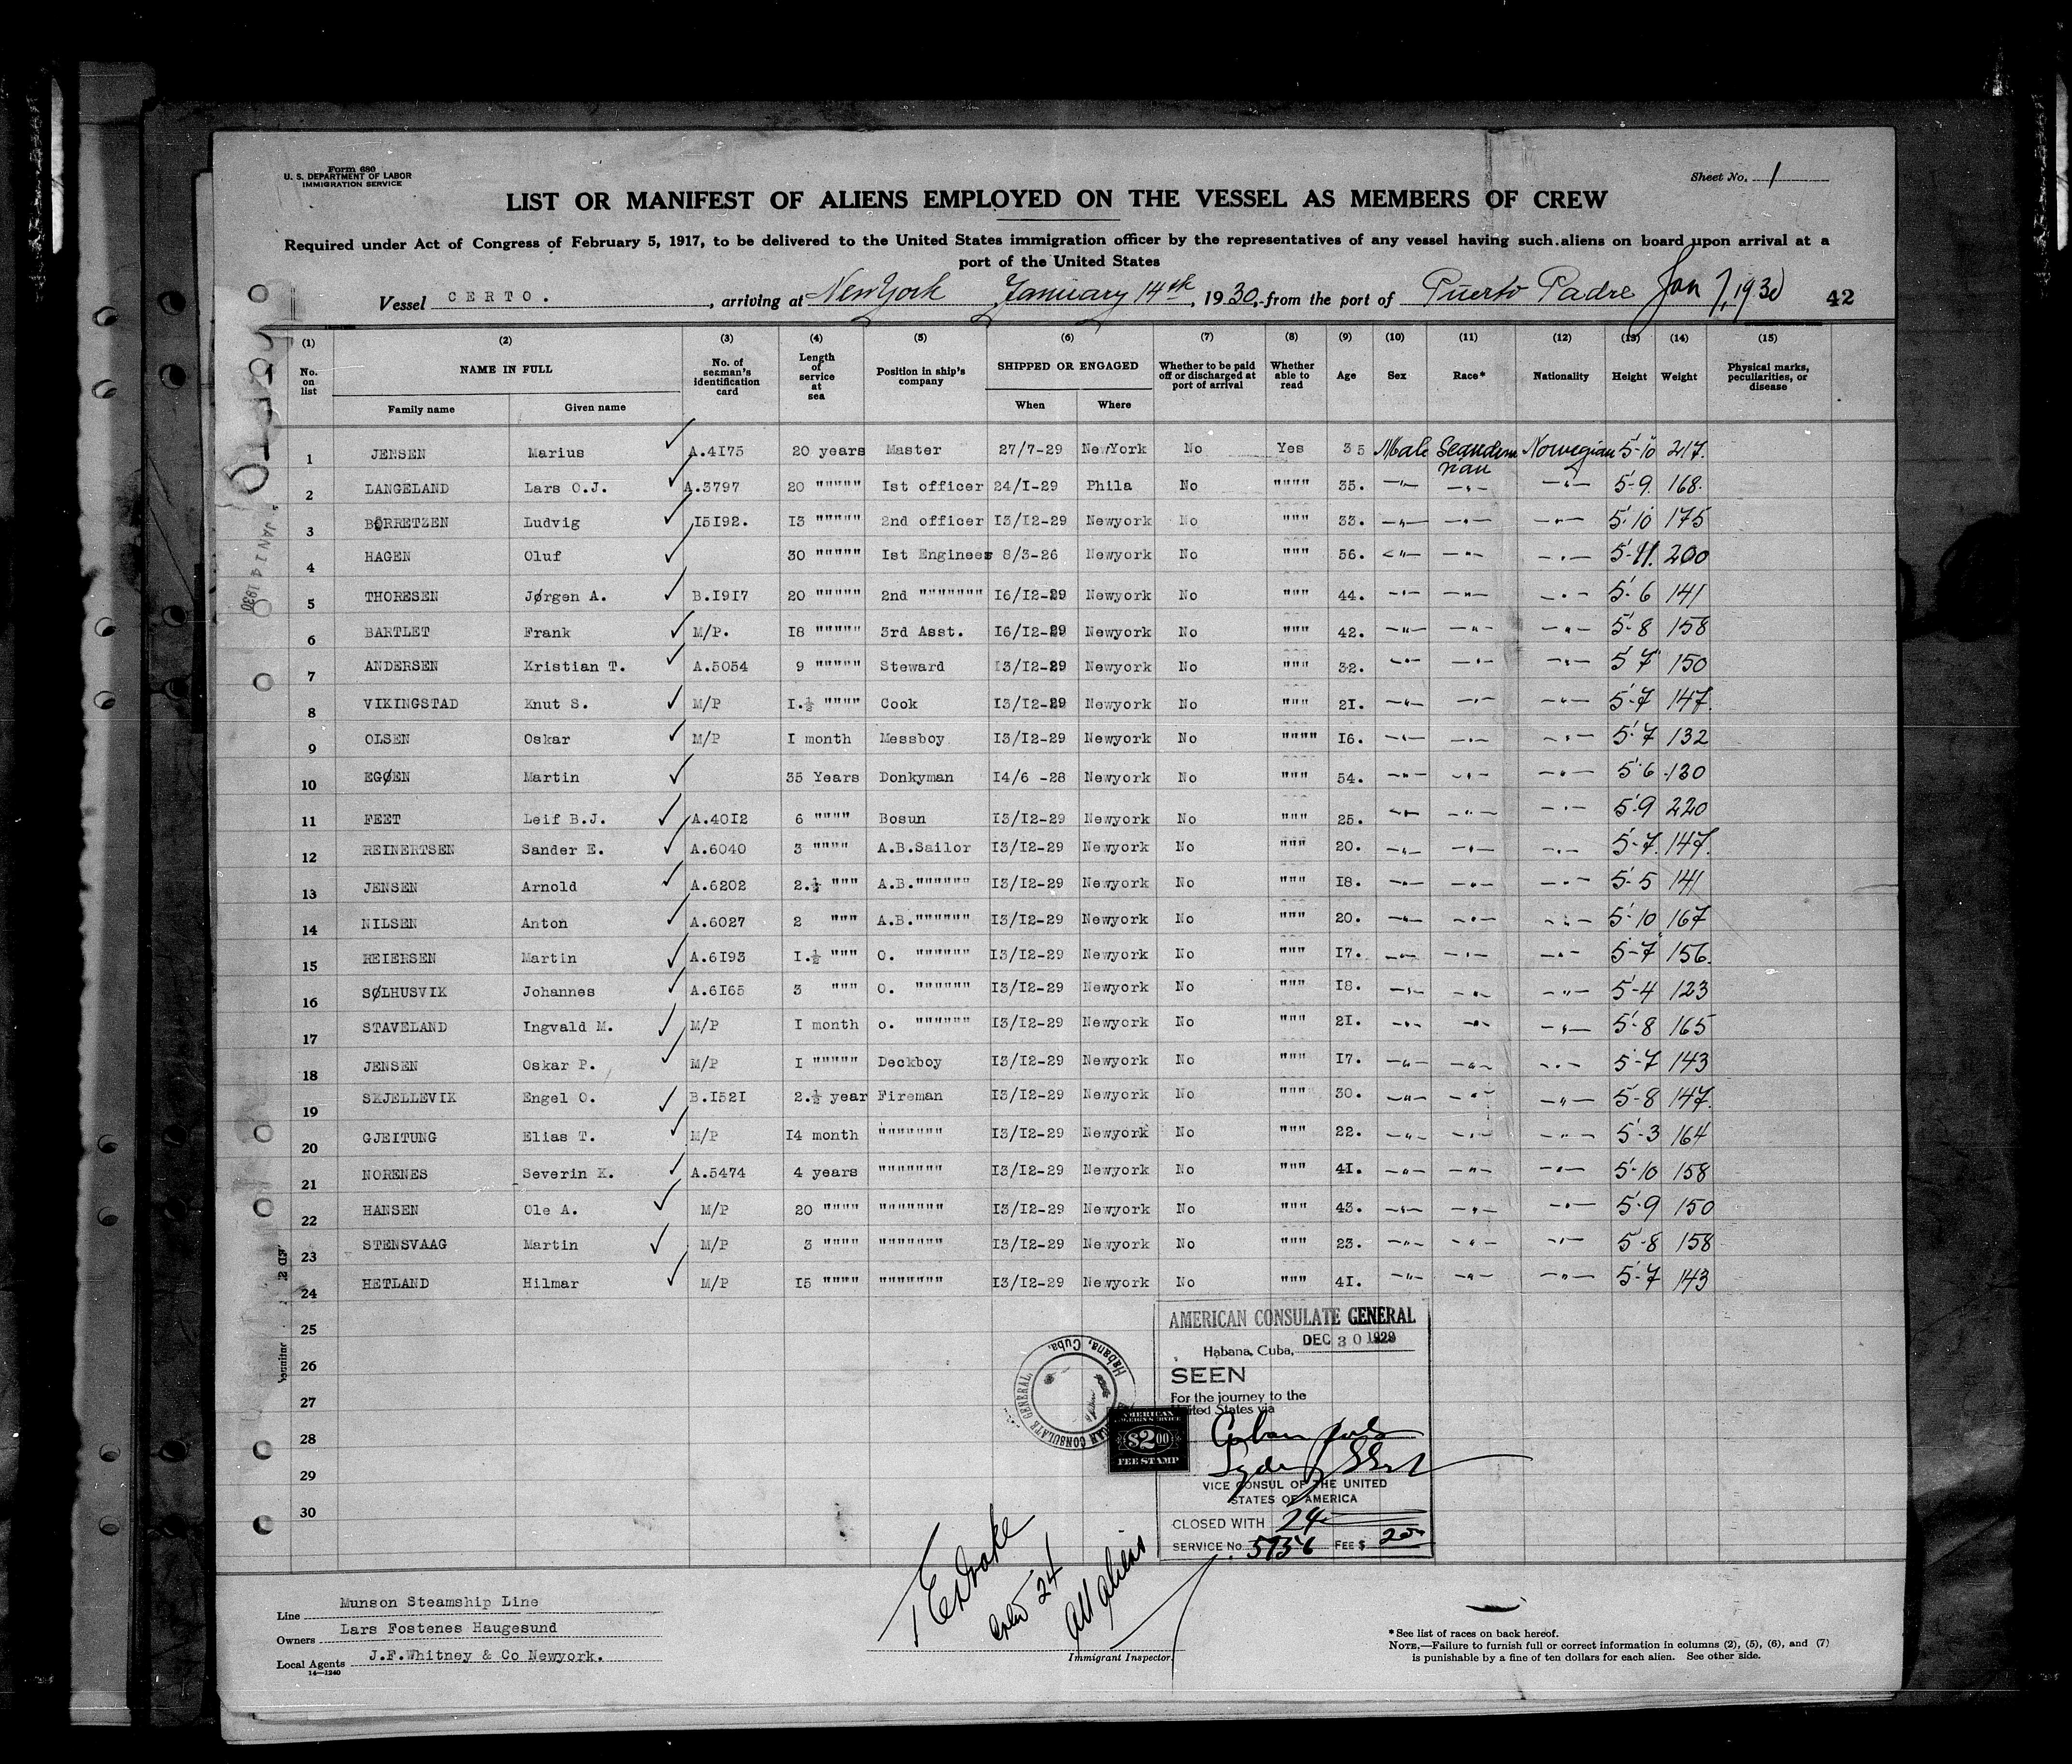 Form 680
U. S. DEPARTMENT OF LABOR
IMMIGRATION SERVICE
Sheet No. 1
LIST OR MANIFEST OF ALIENS EMPLOYED ON THE VESSEL AS MEMBERS OF CREW
Required under Act of Congress of February 5, 1917, to be delivered to the United States immigration officer by the representatives of any vessel having such aliens on board upon arrival at a
port of the United States
Vessel CERTO. , arriving at New York January 14th, 1930, from the port of Puerto Padre Jan 7, 1930 42
(1) (2) (3) (4) (5) (6) (7) (8) (9) (10) (11) (12) (13) (14) (15)
No. on list NAME IN FULL Family name Given name No. of seaman's identification card Length of service at sea Position in ship's company SHIPPED OR ENGAGED When Where Whether to be paid off or discharged at port of arrival Whether able to read Age Sex Race* Nationality Height Weight Physical marks, peculiarities, or disease
1 JENSEN Marius A.4175 20 years Master 27/7-29 NewYork No Yes 35 Male Scandinavian Norwegian 5'-10" 217.
2 LANGELAND Lars O.J. A.3797 20 """"" Ist officer 24/I-29 Phila No """" 35. -"- -"- -"- 5'-9. 168.
3 BØRRETZEN Ludvig I5I92. I3 """"" 2nd officer I3/I2-29 Newyork No """ 33. -"- -"- -"- 5'-10 175
4 HAGEN Oluf 30 """"" Ist Engineer 8/3-26 Newyork No """ 56. -"- -"- -"- 5'-11. 200
5 THORESEN Jørgen A. B.I9I7 20 """"" 2nd """"""" I6/I2-29 Newyork No """ 44. -"- -"- -"- 5'-6 141
6 BARTLET Frank M/P. I8 """"" 3rd Asst. I6/I2-29 Newyork No """ 42. -"- -"- -"- 5'-8 158
7 ANDERSEN Kristian T. A.5054 9 """"" Steward I3/I2-29 Newyork No """ 32. -"- -"- -"- 5'7" 150
8 VIKINGSTAD Knut S. M/P I.½ """" Cook I3/I2-29 Newyork No """ 2I. -"- -"- -"- 5'-7 147.
9 OLSEN Oskar M/P I month Messboy I3/I2-29 Newyork No """" I6. -"- -"- -"- 5'-7 132
10 EGØEN Martin 35 Years Donkyman I4/6 -28 Newyork No """ 54. -"- -"- -"- 5'6 130
11 FEET Leif B.J. A.40I2 6 """" Bosun I3/I2-29 Newyork No """ 25. -"- -"- -"- 5'-9 220
12 REINERTSEN Sander E. A.6040 3 """" A.B.Sailor I3/I2-29 Newyork No """ 20. -"- -"- -"- 5'-7. 147.
13 JENSEN Arnold A.6202 2.½ """ A.B."""""" I3/I2-29 Newyork No """ I8. -"- -"- -"- 5'-5 141
14 NILSEN Anton A.6027 2 """ A.B."""""" I3/I2-29 Newyork No """ 20. -"- -"- -"- 5'-10 167
15 REIERSEN Martin A.6I93 I.½ """ O. """""" I3/I2-29 Newyork No """ I7. -"- -"- -"- 5'-7" 156.
16 SØLHUSVIK Johannes A.6I65 3 """ O. """""" I3/I2-29 Newyork No """ I8. -"- -"- -"- 5'-4 123
17 STAVELAND Ingvald M. M/P I month o. """""" I3/I2-29 Newyork No """ 2I. -"- -"- -"- 5'-8 165
18 JENSEN Oskar P. M/P I """"" Deckboy I3/I2-29 Newyork No """ I7. -"- -"- -"- 5'-7 143
19 SKJELLEVIK Engel O. B.I52I 2.½ year Fireman I3/I2-29 Newyork No """ 30. -"- -"- -"- 5'-8 147.
20 GJEITUNG Elias T. M/P I4 month """"""" I3/I2-29 Newyork No """ 22. -"- -"- -"- 5'-3 164
21 NORENES Severin K. A.5474 4 years """"""" I3/I2-29 Newyork No """ 4I. -"- -"- -"- 5'-10 158
22 HANSEN Ole A. M/P 20 """" """"""" I3/I2-29 Newyork No """ 43. -"- -"- -"- 5'-9 150
23 STENSVAAG Martin M/P 3 """" """"""" I3/I2-29 Newyork No """ 23. -"- -"- -"- 5'-8 158
24 HETLAND Hilmar M/P I5 """" """"""" I3/I2-29 Newyork No """ 4I. -"- -"- -"- 5'-7 143
25
26
27
28
29
30
JAN 14 1930
AMERICAN CONSULATE GENERAL
DEC 30 1929
Habana, Cuba,
SEEN
For the journey to the
United States via
Cuban ports
VICE CONSUL OF THE UNITED
STATES OF AMERICA
CLOSED WITH 24
SERVICE No. 5756 FEE $ 2.00
AMERICAN CONSULATE GENERAL Habana, Cuba.
AMERICAN
FOREIGN SERVICE
$2.00
FEE STAMP
crew 24
all aliens
Immigrant Inspector.
Line Munson Steamship Line
Owners Lars Fostenes Haugesund
Local Agents J.F.Whitney & Co Newyork.
14—1240
*See list of races on back hereof.
NOTE.—Failure to furnish full or correct information in columns (2), (5), (6), and (7)
is punishable by a fine of ten dollars for each alien. See other side.